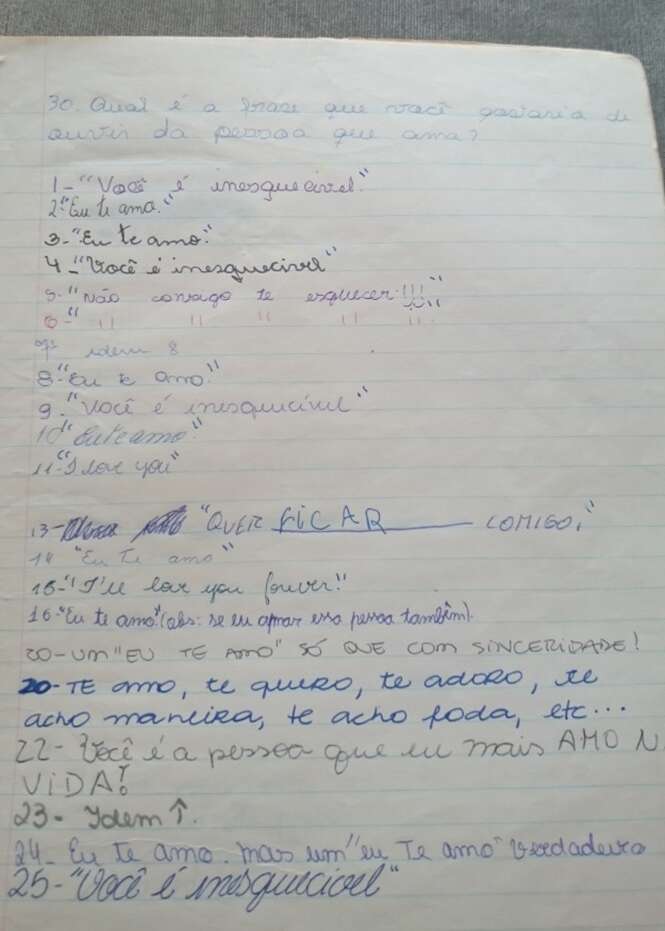 30. Qual é a frase que você gostaria de
ouvir da pessoa que ama?
1-"Você é inesquecível."
2-"Eu te amo."
3-"Eu te amo."
4-"Você é inesquecível"
5-"Não consigo te esquecer!!!"
6-" " " " " "
7- idem 8
8-"Eu te amo."
9-"Você é inesquecível."
10"Eu te amo."
11-"I love you"
13- "QUER FICAR COMIGO."
14 "Eu Te amo"
15-"I'll lov you forever!"
16-"Eu te amo."(obs: se eu amar essa pessoa também).
20-UM "EU TE AMO" SÓ QUE COM SINCERIDADE!
20-TE amo, te quero, te adoro, te
acho maneira, te acho foda, etc...
22- Você é a pessoa que eu mais AMO N
VIDA!
23- Idem ↑.
24- Eu te amo. mas um "eu Te amo" verdadeiro
25-"Você é inesquecível"